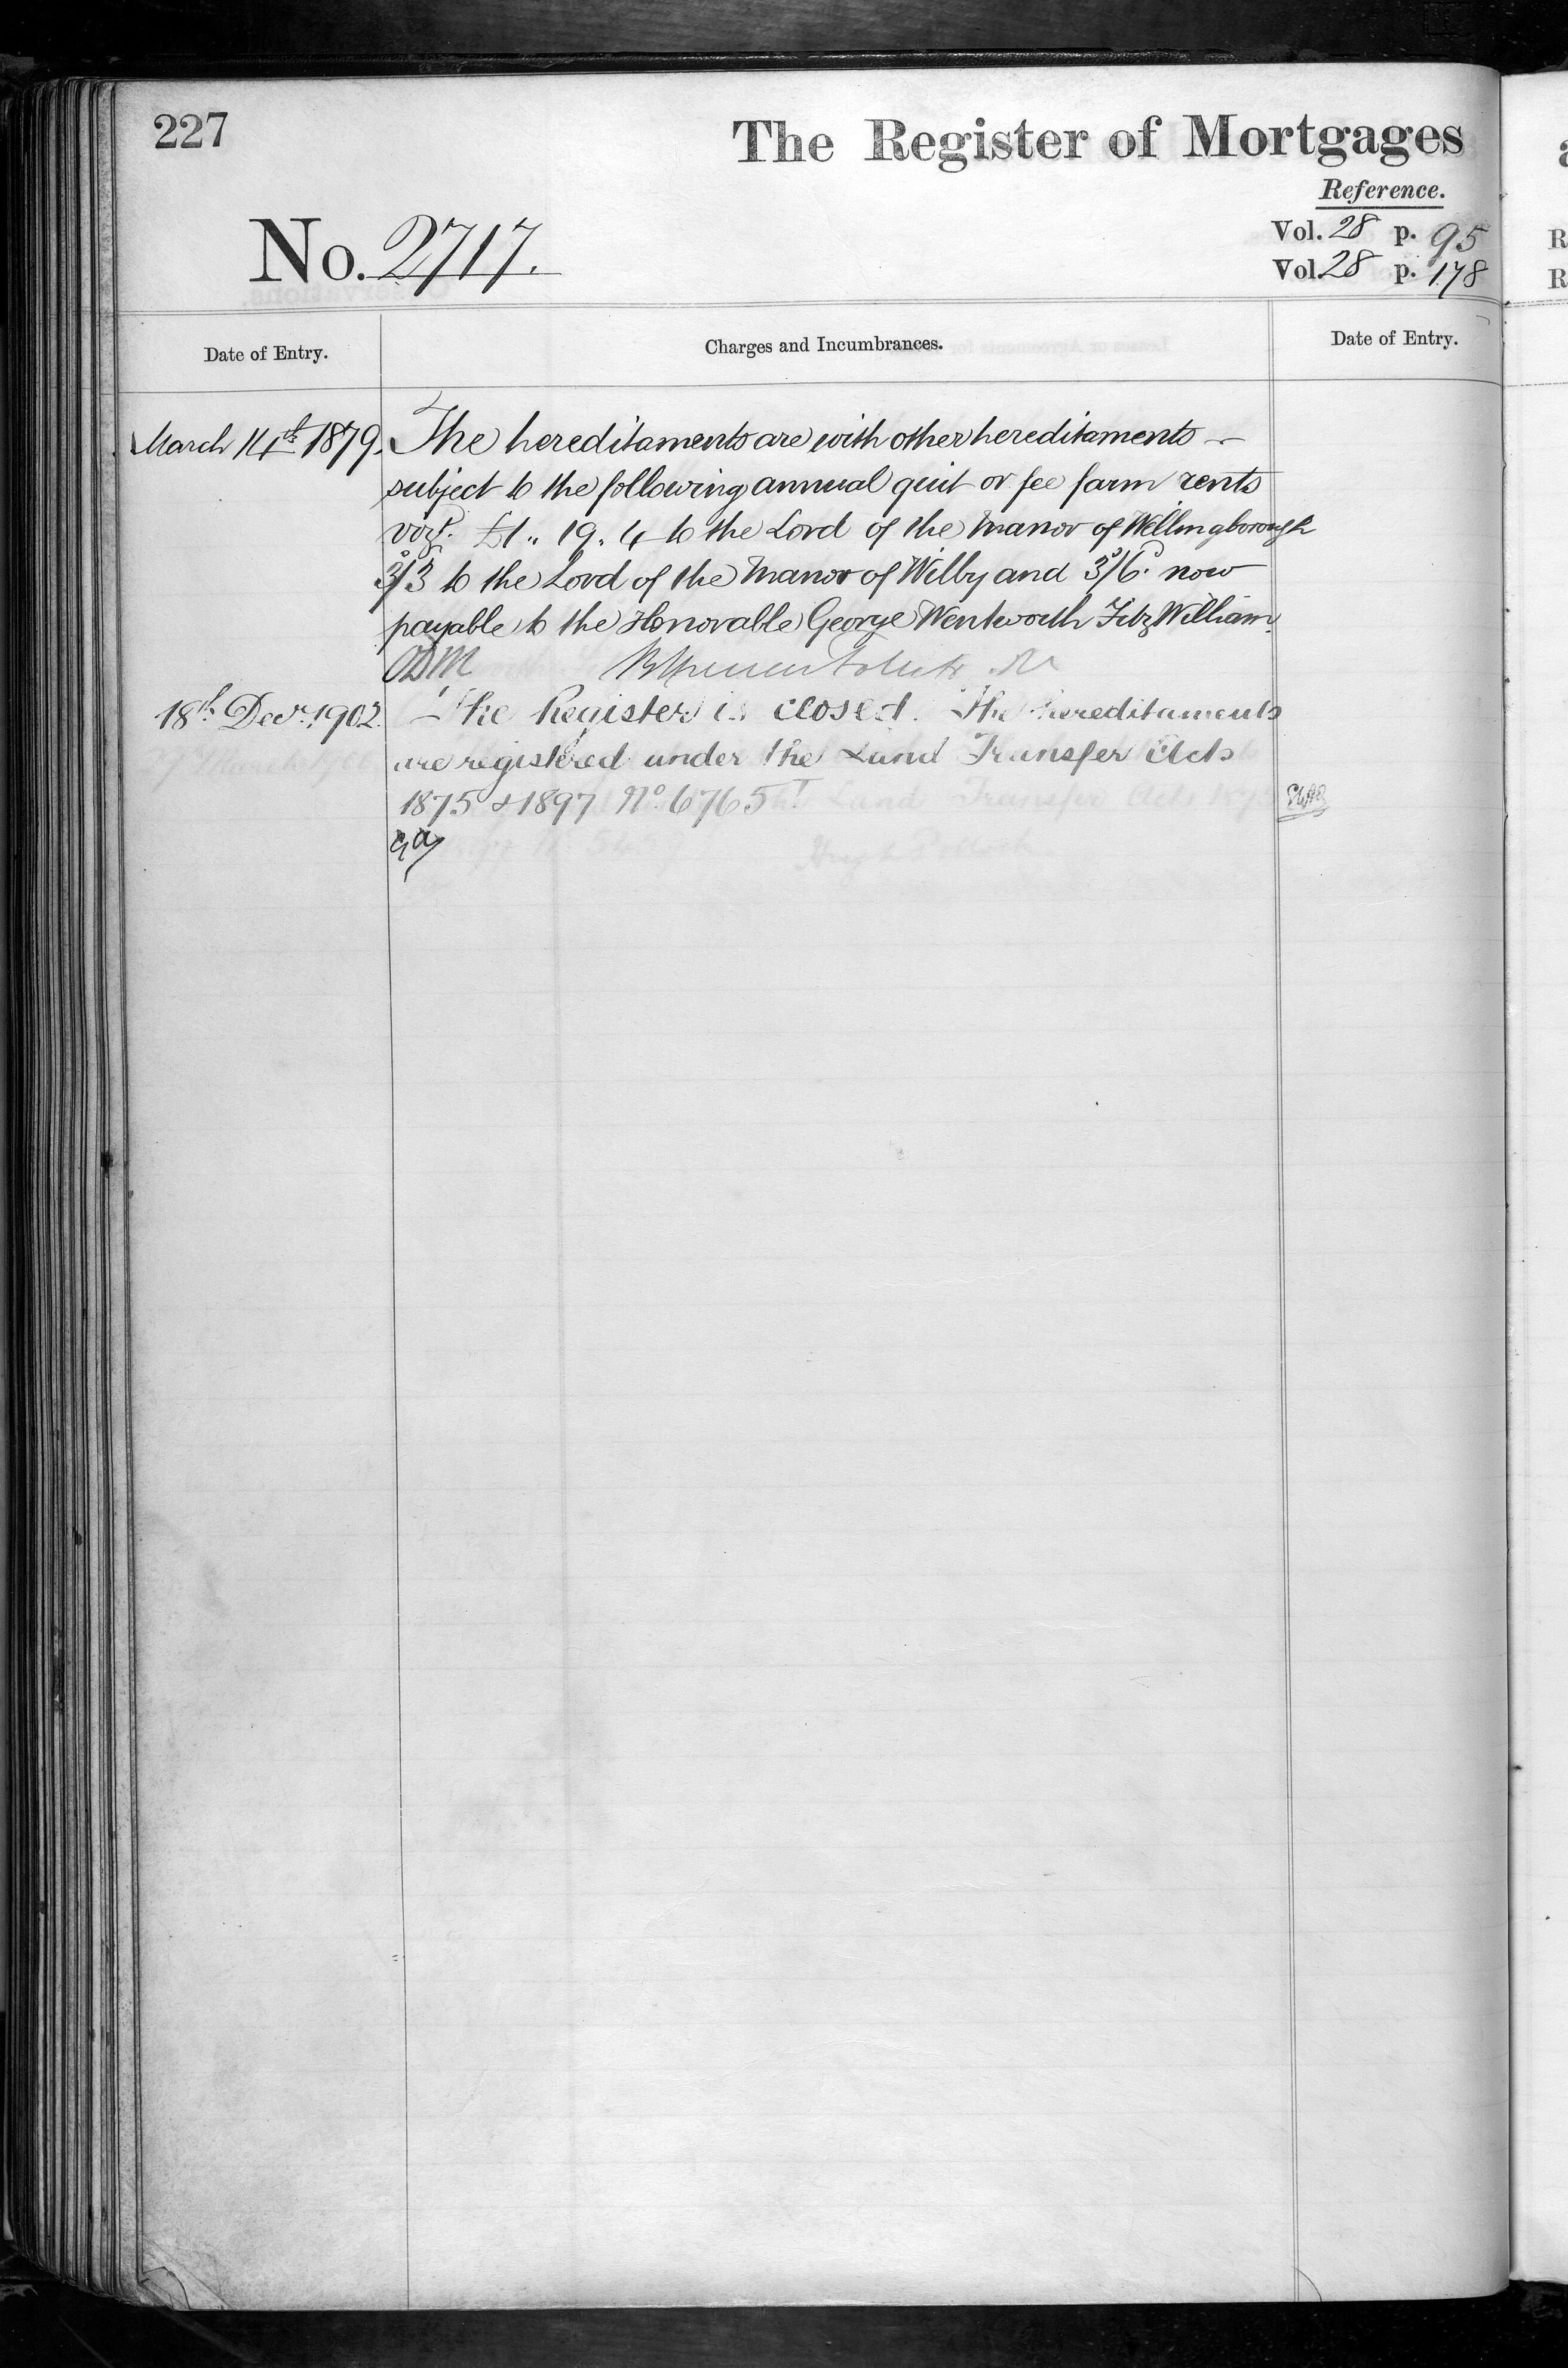 227
The Register of Mortgages
Reference.
No. 2717.
Vol. 28 p. 95
Vol. 28 p. 178
Date of Entry.
Charges and Incumbrances.
Date of Entry.
March 14th 1879. The hereditaments are with other hereditaments
subject to the following annual quit or fee farm rents
viz. £1 „ 19 „ 4 to the Lord of the Manor of Wellingborough
3/3 to the Lord of the Manor of Wilby and 3/6. now
payable to the Honorable George Wentworth FitzWilliam.
ODM
18th Decr. 1902. The Register is closed. The hereditaments
are registered under the Land Transfer Acts
1875 & 1897 No. 6765